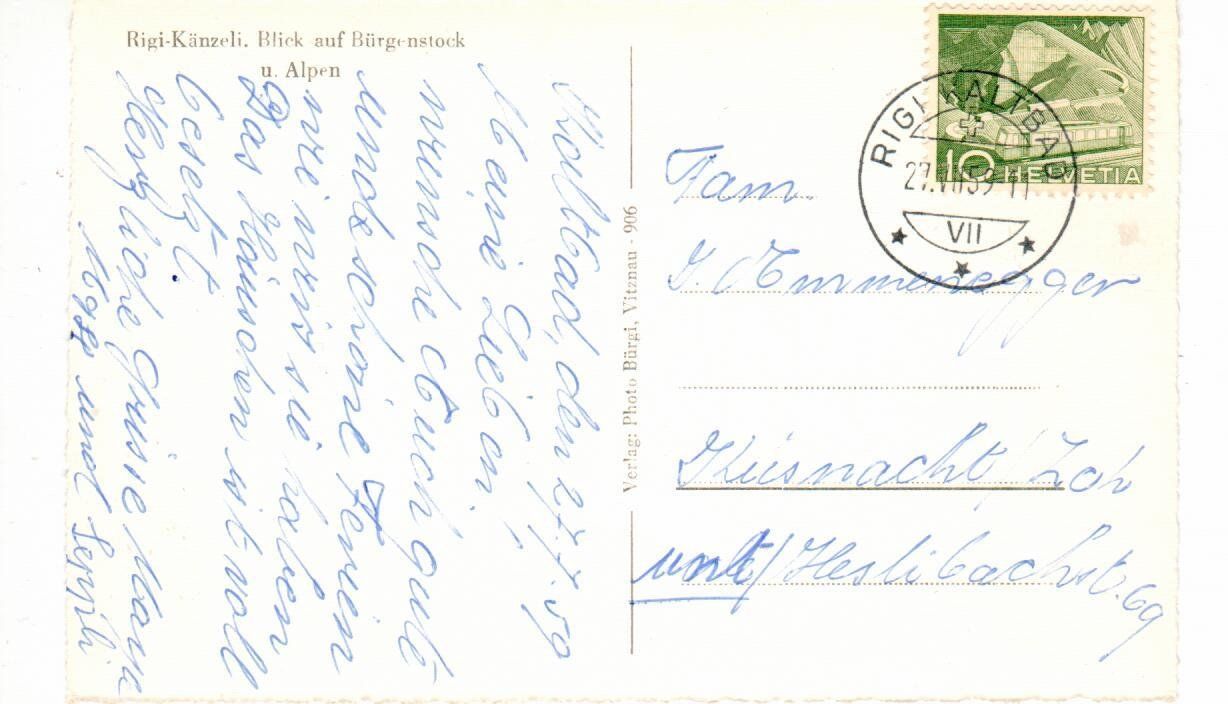 Rigi-Känzeli. Blick auf Bürgenstock
u. Alpen
Kaltbad, den 27.7.59
Meine Lieben!
wünsche Euch gute
und schöne Ferien
wie wir sie haben
Das Häuschen ist voll
besetzt.
Herzliche Grüsse
und Seppli
Verlag: Photo Bürgi, Vitznau - 906
RIGI KALTBAD
27.VII.59-11
VII
10 HELVETIA
Fam.
J. Emmenegger
Küsnacht/Zch
unt/Heslibachst. 69